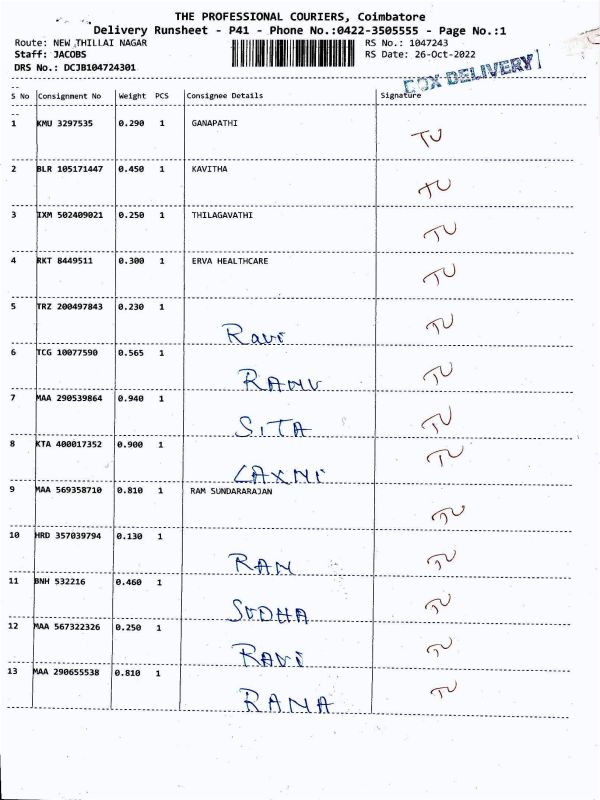 THE PROFESSIONAL COURIERS, Coimbatore
Delivery Runsheet - P41 - Phone No.:0422-3505555 - Page No.:1
Route: NEW THILLAI NAGAR RS No.: 1047243
Staff: JACOBS RS Date: 26-Oct-2022
DRS No.: DCJB104724301
BOX DELIVERY
S No Consignment No Weight PCS Consignee Details Signature
1 KMU 3297535 0.290 1 GANAPATHI
TU
2 BLR 105171447 0.450 1 KAVITHA
TU
3 IXM 502409021 0.250 1 THILAGAVATHI
TU
4 RKT 8449511 0.300 1 ERVA HEALTHCARE
TU
5 TRZ 200497843 0.230 1
Ravi TU
6 TCG 10077590 0.565 1
RAMU TU
7 MAA 290539864 0.940 1
SITA TU
8 KTA 400017352 0.900 1
LAXMI TU
9 MAA 569358710 0.810 1 RAM SUNDARARAJAN
TU
10 HRD 357039794 0.130 1
RAM TU
11 BNH 532216 0.460 1
SUDHA TU
12 MAA 567322326 0.250 1
RAVI TU
13 MAA 290655538 0.810 1
RAMA TU